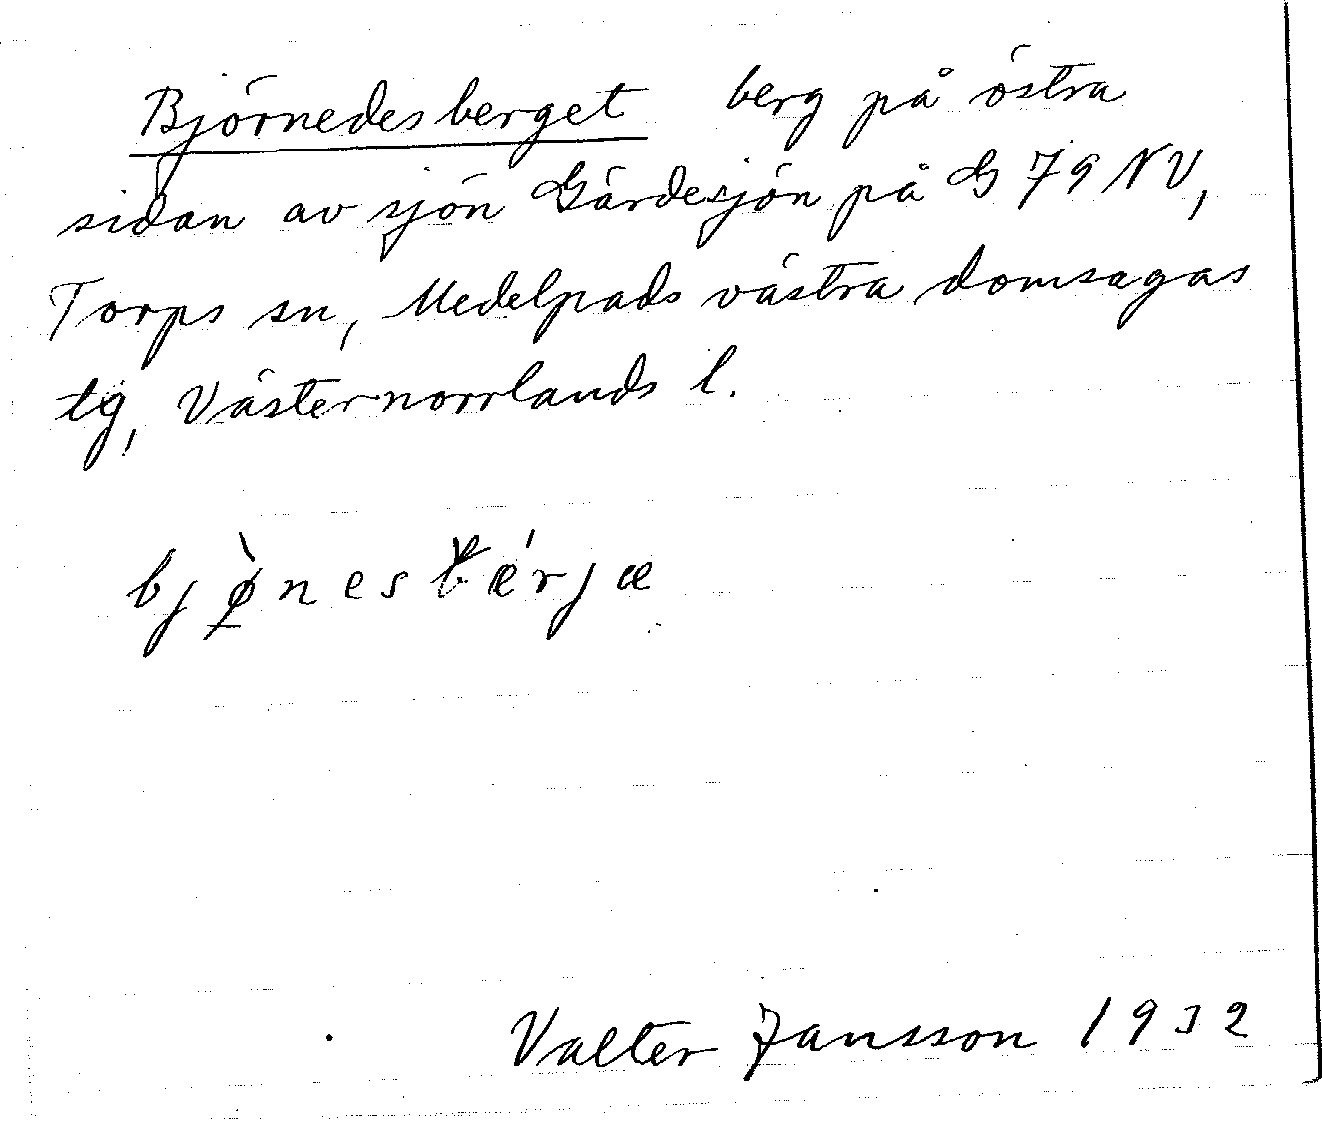 Björnedesberget berg på östra
sidan av sjön Gärdesjön på G 79 NV,
Torps sn, Medelpads västra domsagas
tg, Västernorrlands l.
bjø̀nesbǽrjæ
Valter Jansson 1932